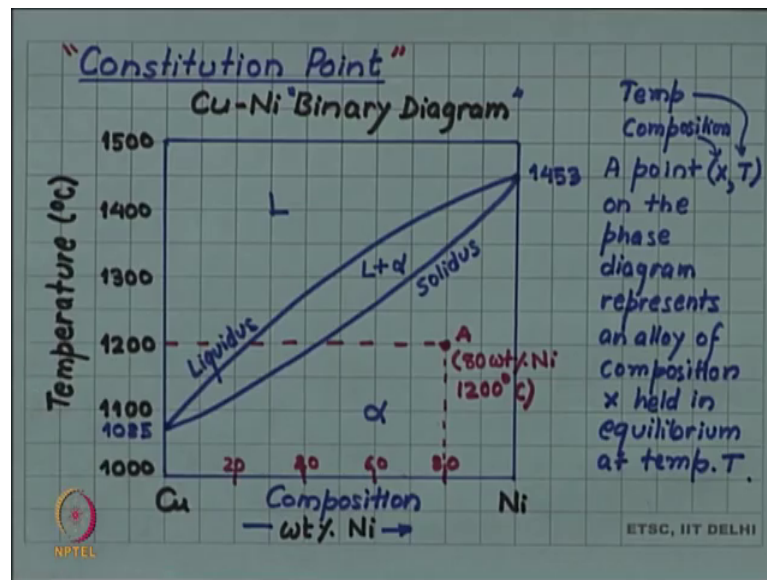 "Constitution Point"
Cu-Ni "Binary Diagram"
Temperature (°C)
1500
1400
1300
1200
1100
1085
1000
L
L+α
Liquidus
Solidus
1453
A
(80wt% Ni
1200°C)
α
20
40
60
80
Cu
Composition
Ni
wt% Ni
Temp
Composition
A point (x, T)
on the
phase
diagram
represents
an alloy of
composition
x held in
equilibrium
at temp. T.
NPTEL
ETSC, IIT DELHI